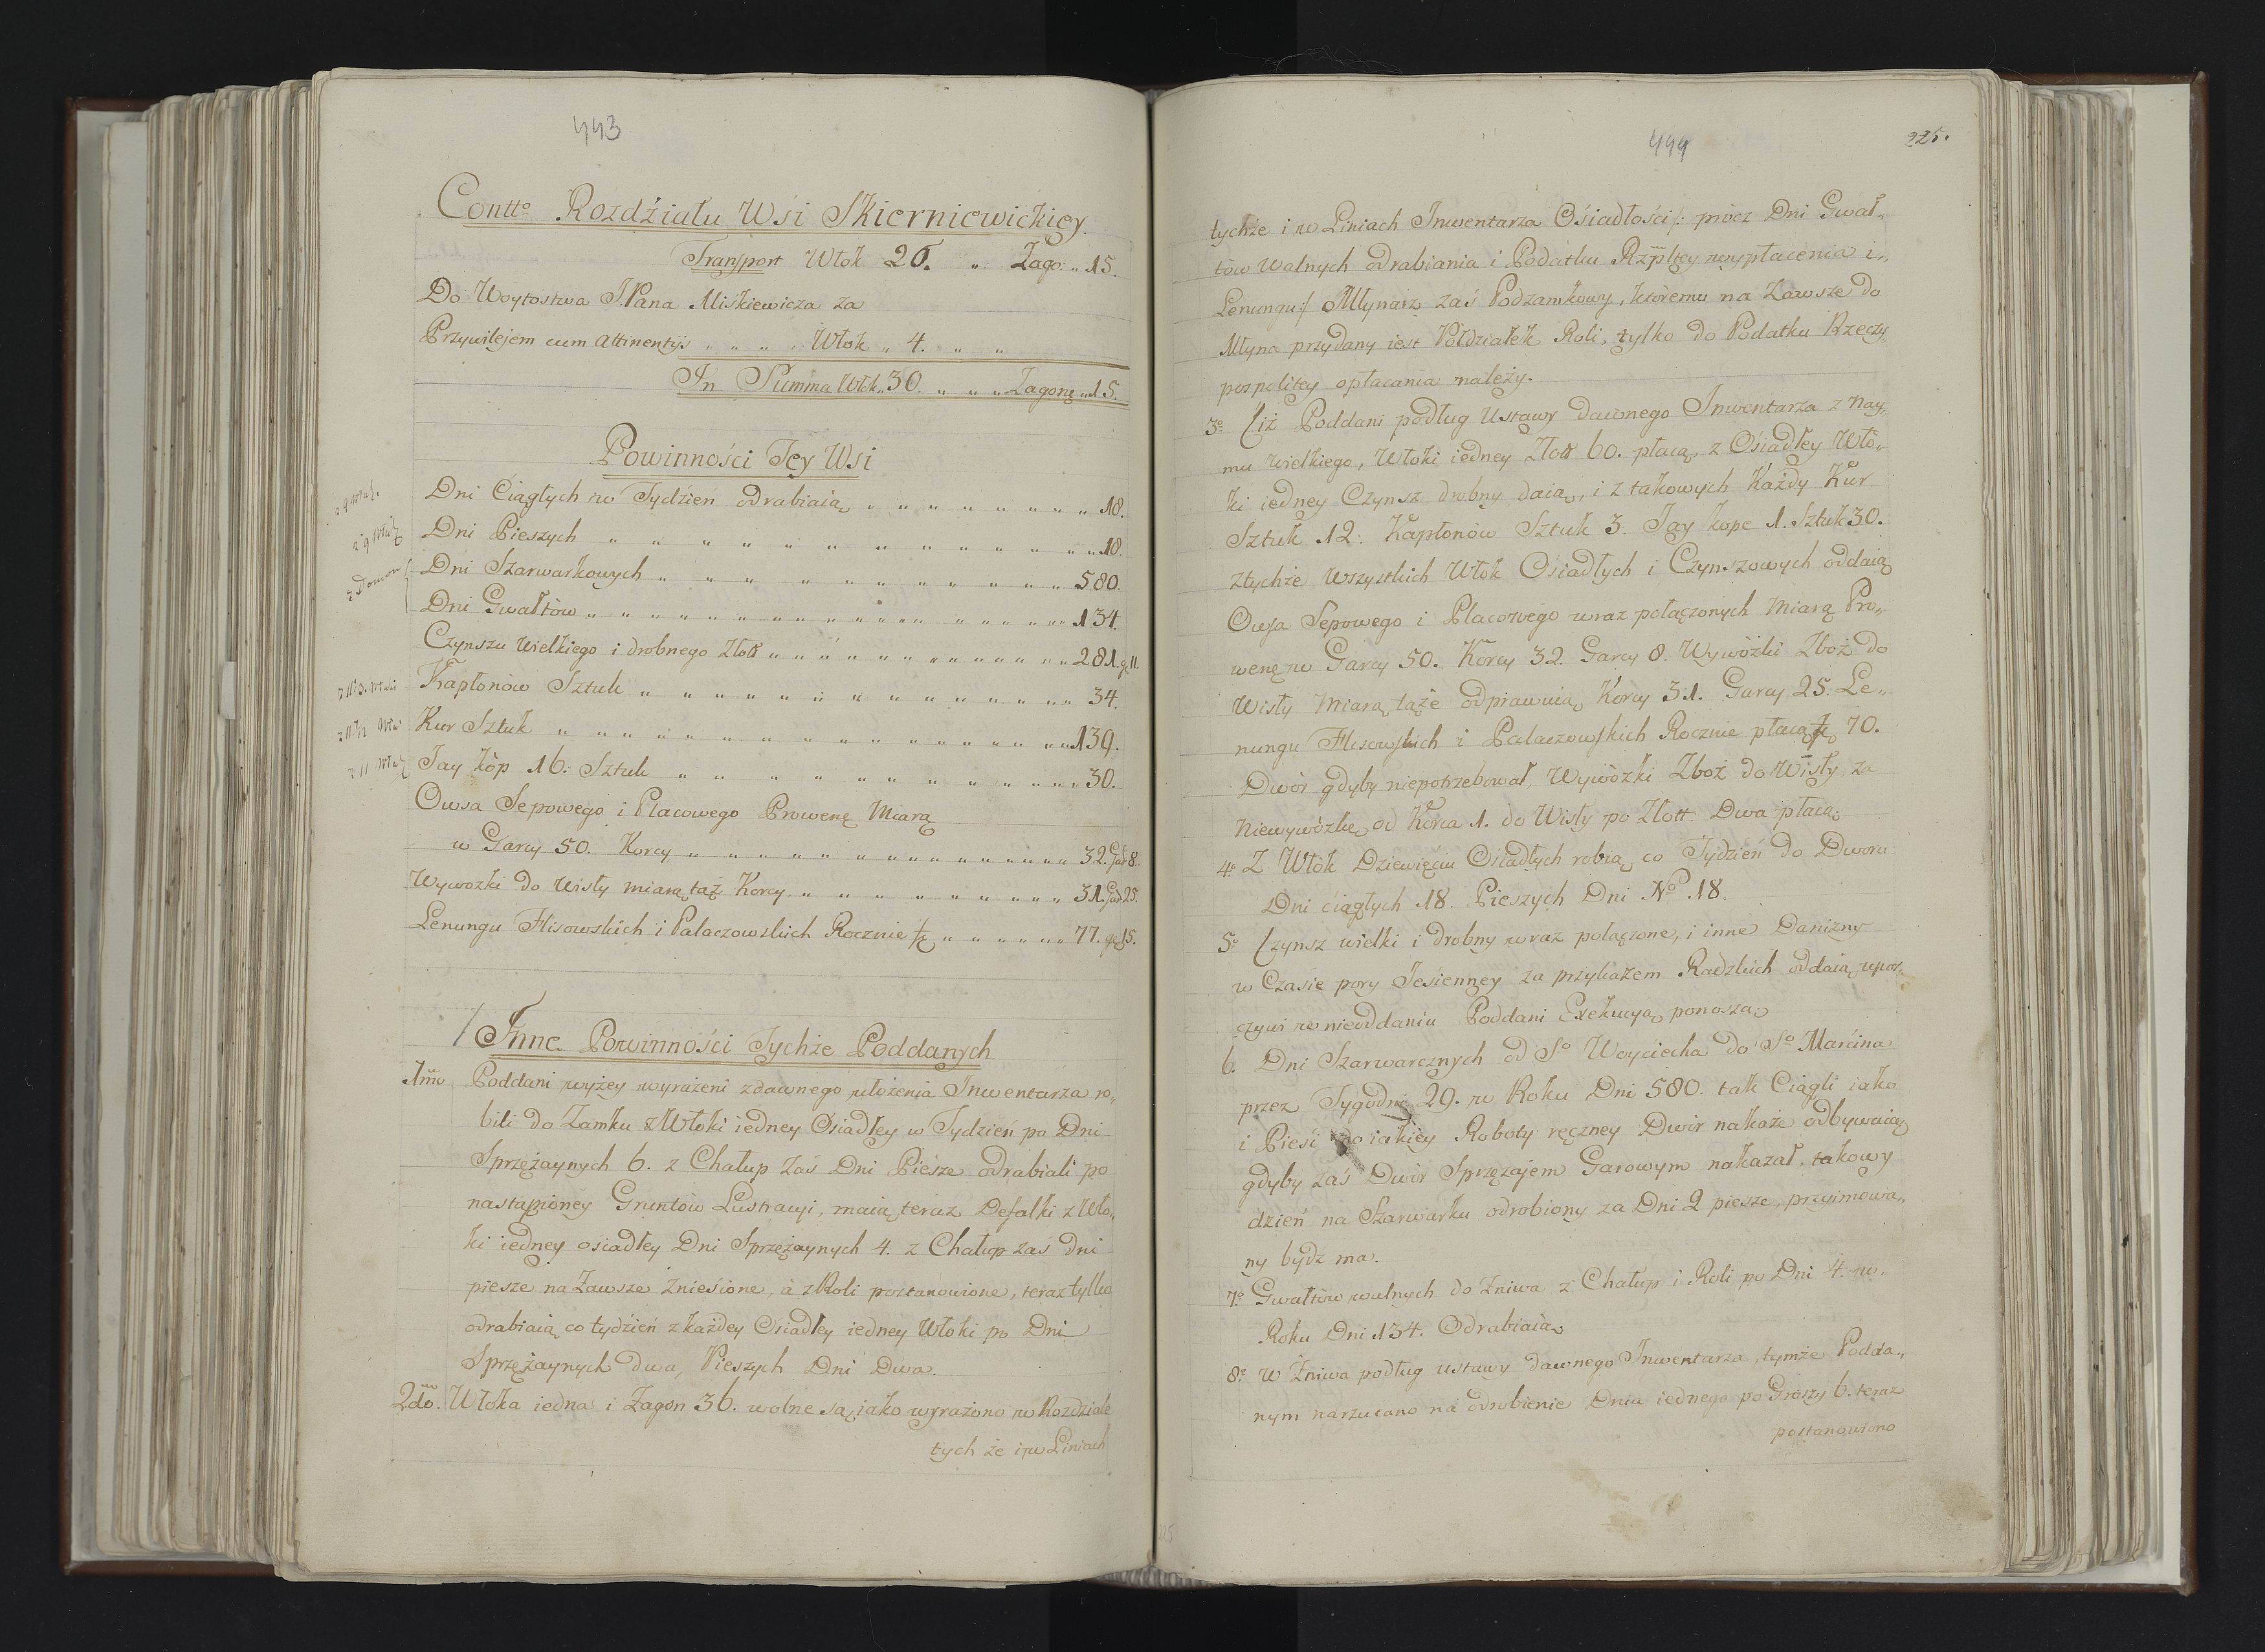 443
Contto Rozdźiału Wśi Skierniewickiey.
Transport Włok 26. „ Zago: „ 15.
Do Woytostwa JPana Miśkiewicza za
Przywilejem cum attinentijs „ „ „ „ Włok „ 4. „ „
In Summa Włk. 30. „ „ „ Zagonę „ 15.
Powinnośći Tey Wśi
z 9 Włuk. Dni Ciągłych w Tydźień odrabiaią „ „ „ „ „ „ „ „ 18.
z 9 Włuk Dni Pieszych „ „ „ „ „ „ „ „ „ „ „ „ 18.
z Domow Dni Szarwarkowych „ „ „ „ „ „ „ „ „ „ 580.
Dni Gwałtów „ „ „ „ „ „ „ „ „ „ „ „ „ „ 134.
Czynszu Wielkiego i drobnego Złott „ „ „ „ „ „ „ „ „ „ 281. g. 11.
Kapłonów Sztuk „ „ „ „ „ „ „ „ „ „ „ 34.
Kur Sztuk „ „ „ „ „ „ „ „ „ „ „ „ „ 139.
Jay kóp 16. Sztuk „ „ „ „ „ „ „ „ „ „ 30.
Owsa Sepowego i Placowego Prowenę Miarą
w Garcy 50. Korcy „ „ „ „ „ „ „ „ „ „ „ „ „ 32. Gar 8.
Wywozki do Wisły miarą taż Korcy „ „ „ „ „ „ „ „ „ 31. Gar 25.
Lenungu Flisowskich i Pałaczowskich Rocznie „ „ „ „ „ „ 77. g. 15.
Inne Powinnośći Tychże Poddanych
1mo Poddani wyżey wyrażeni z dawnego ułożenia Inwentarza ro„
bili do Zamku z Włoki iedney Osiadłey w Tydzień po Dni
Sprzężaynych 6. z Chałup zaś Dni Piesze odrabiali po
nastąpioney Gruntów Lustracyi, maią teraz Defalki z Wło„
ki iedney ośiadłey Dni Sprzężaynych 4. z Chałup zaś dni
piesze na Zawsze Zniesione, a z Roli postanowione, teraz tylko
odrabiaią co tydźień z każdey Osiadłey iedney Włoki po Dni
Sprzężaynych dwa, Pieszych Dni Dwa.
2do. Włoka iedna i Zagon 36. wolne są jako wyrażono w Rozdziale
tych że i w Liniach
444
225.
tychże i w Liniach Inwentarza Ośiadłośći /: prócz Dni Gwał„
tów walnych odrabiania i Podatku Rzpltey wypłacenia i„
Lenungu :/ Młynarz zaś Podzamkowy, któremu na Zawsze do
Młyna przydany iest Półdziałek Roli, tylko do Podatku Rzeczy„
pospolitey opłacania należy.
3o iż Poddani podług Ustawy dawnego Inwentarza z nay„
mu wielkiego, Włoki iedney Złott 60. płacą, z Ośiadłey Wło„
ki iedney Czynsz drobny daią, i z takowych Każdy Kur
Sztuk 12. Kapłonów Sztuk 3. Jay kope 1. Sztuk 30.
z tychże Wszystkich Włok Ośiadłych i Czynszowych oddaią
Owsa Sepowego i Placowego wraz połączonych Miarą Pro„
wenę w Garcy 50. Korcy 32. Garcy 8. Wywózki Zboż do
Wisły Miarą tąże odprawuią Korcy 31. Garcy 25. Le„
nungu Flisowskich i Pałaczowskich Rocznie płacą 70.
Dwór gdyby niepotrzebował, Wywózki Zboż do Wisły za
Niewywózkę od Korca 1. do Wisły po Złott: Dwa płacą.
4o Z Włok Dziewięciu Osiadłych robią co Tydzień do Dworu
Dni ciągłych 18. Pieszych Dni No 18.
5o Czynsz wielki i drobny wraz połączone, i inne Danizny
w Czasie pory Jesienney za przykazem Radzkich oddaią upor„
czywi w nieoddaniu Poddani Exekucyą ponoszą.
6. Dni Szarwarcznych od So Woyciecha do So Marćina
przez Tygodni 29. w Roku Dni 580. tak Ciągli iako
i Pieśi do iakiey Roboty ręczney Dwór nakaże odbywaią
gdyby zaś Dwór Sprzężajem Garowym nakazał, takowy
dzień na Szarwarku odrobiony za Dni 2 piesze przyimowa„
ny bydź ma.
7o Gwałtów walnych do Żniwa z Chałup i Roli po Dni 4. w
Roku Dni 134. Odrabiaią.
8o W Żniwa podług ustawy dawnego Inwentarza, tymże Podda„
nym narzucano na odrobienie Dnia iednego po Groszy 6. teraz
postanowiono